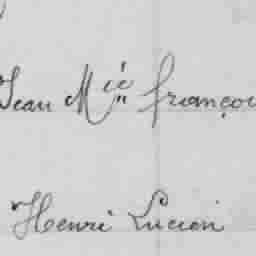 Jean Mcé françoi
Henri Lucien